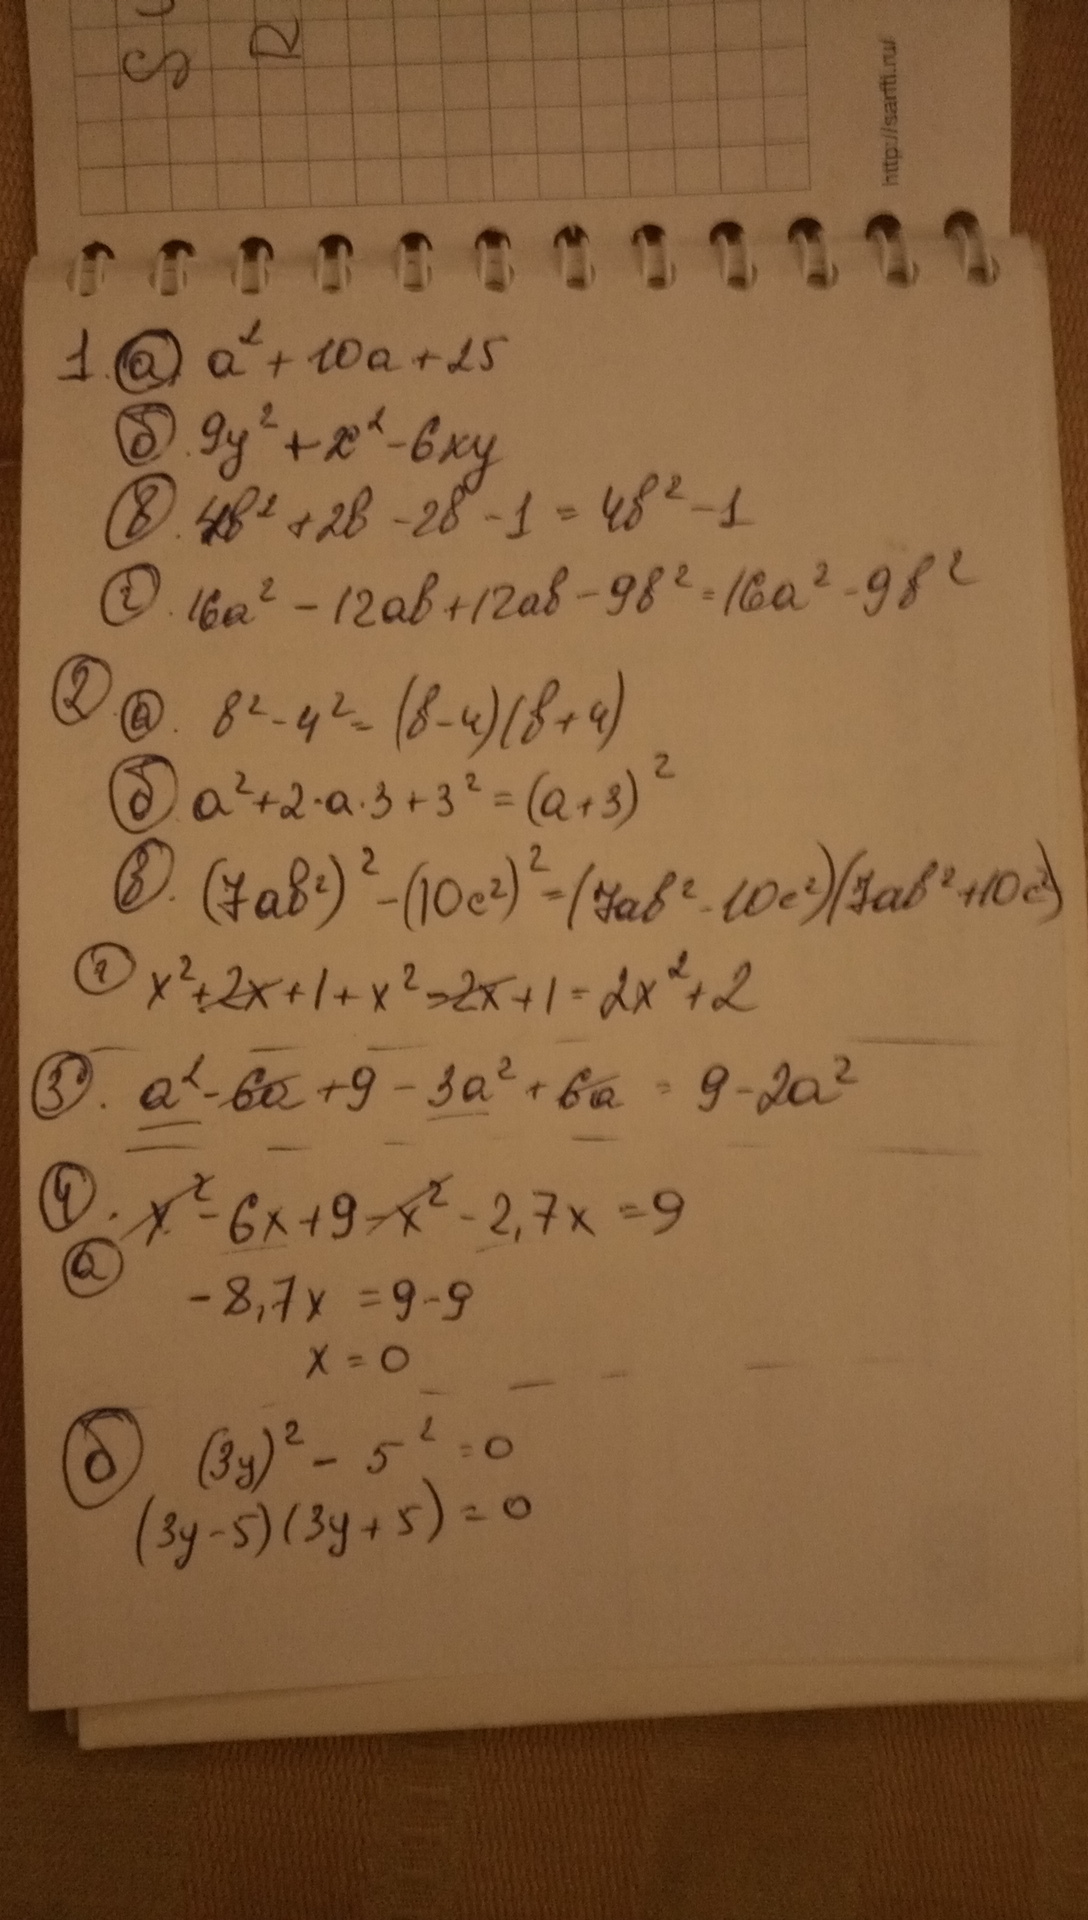 S
R
http://sarfti.ru/
1. а) a² + 10a + 25
б. 9y² + x² - 6xy
в. 4b² + 2b - 2b - 1 = 4b² - 1
г. 16a² - 12ab + 12ab - 9b² = 16a² - 9b²
2. а. b² - 4² = (b - 4)(b + 4)
б a² + 2·a·3 + 3² = (a + 3)²
в. (7ab²)² - (10c²)² = (7ab² - 10c²)(7ab² + 10c²)
г x² + 2x + 1 + x² - 2x + 1 = 2x² + 2
3. a² - 6a + 9 - 3a² + 6a = 9 - 2a²
4. x² - 6x + 9 - x² - 2,7x = 9
а -8,7x = 9 - 9
x = 0
б (3y)² - 5² = 0
(3y - 5)(3y + 5) = 0